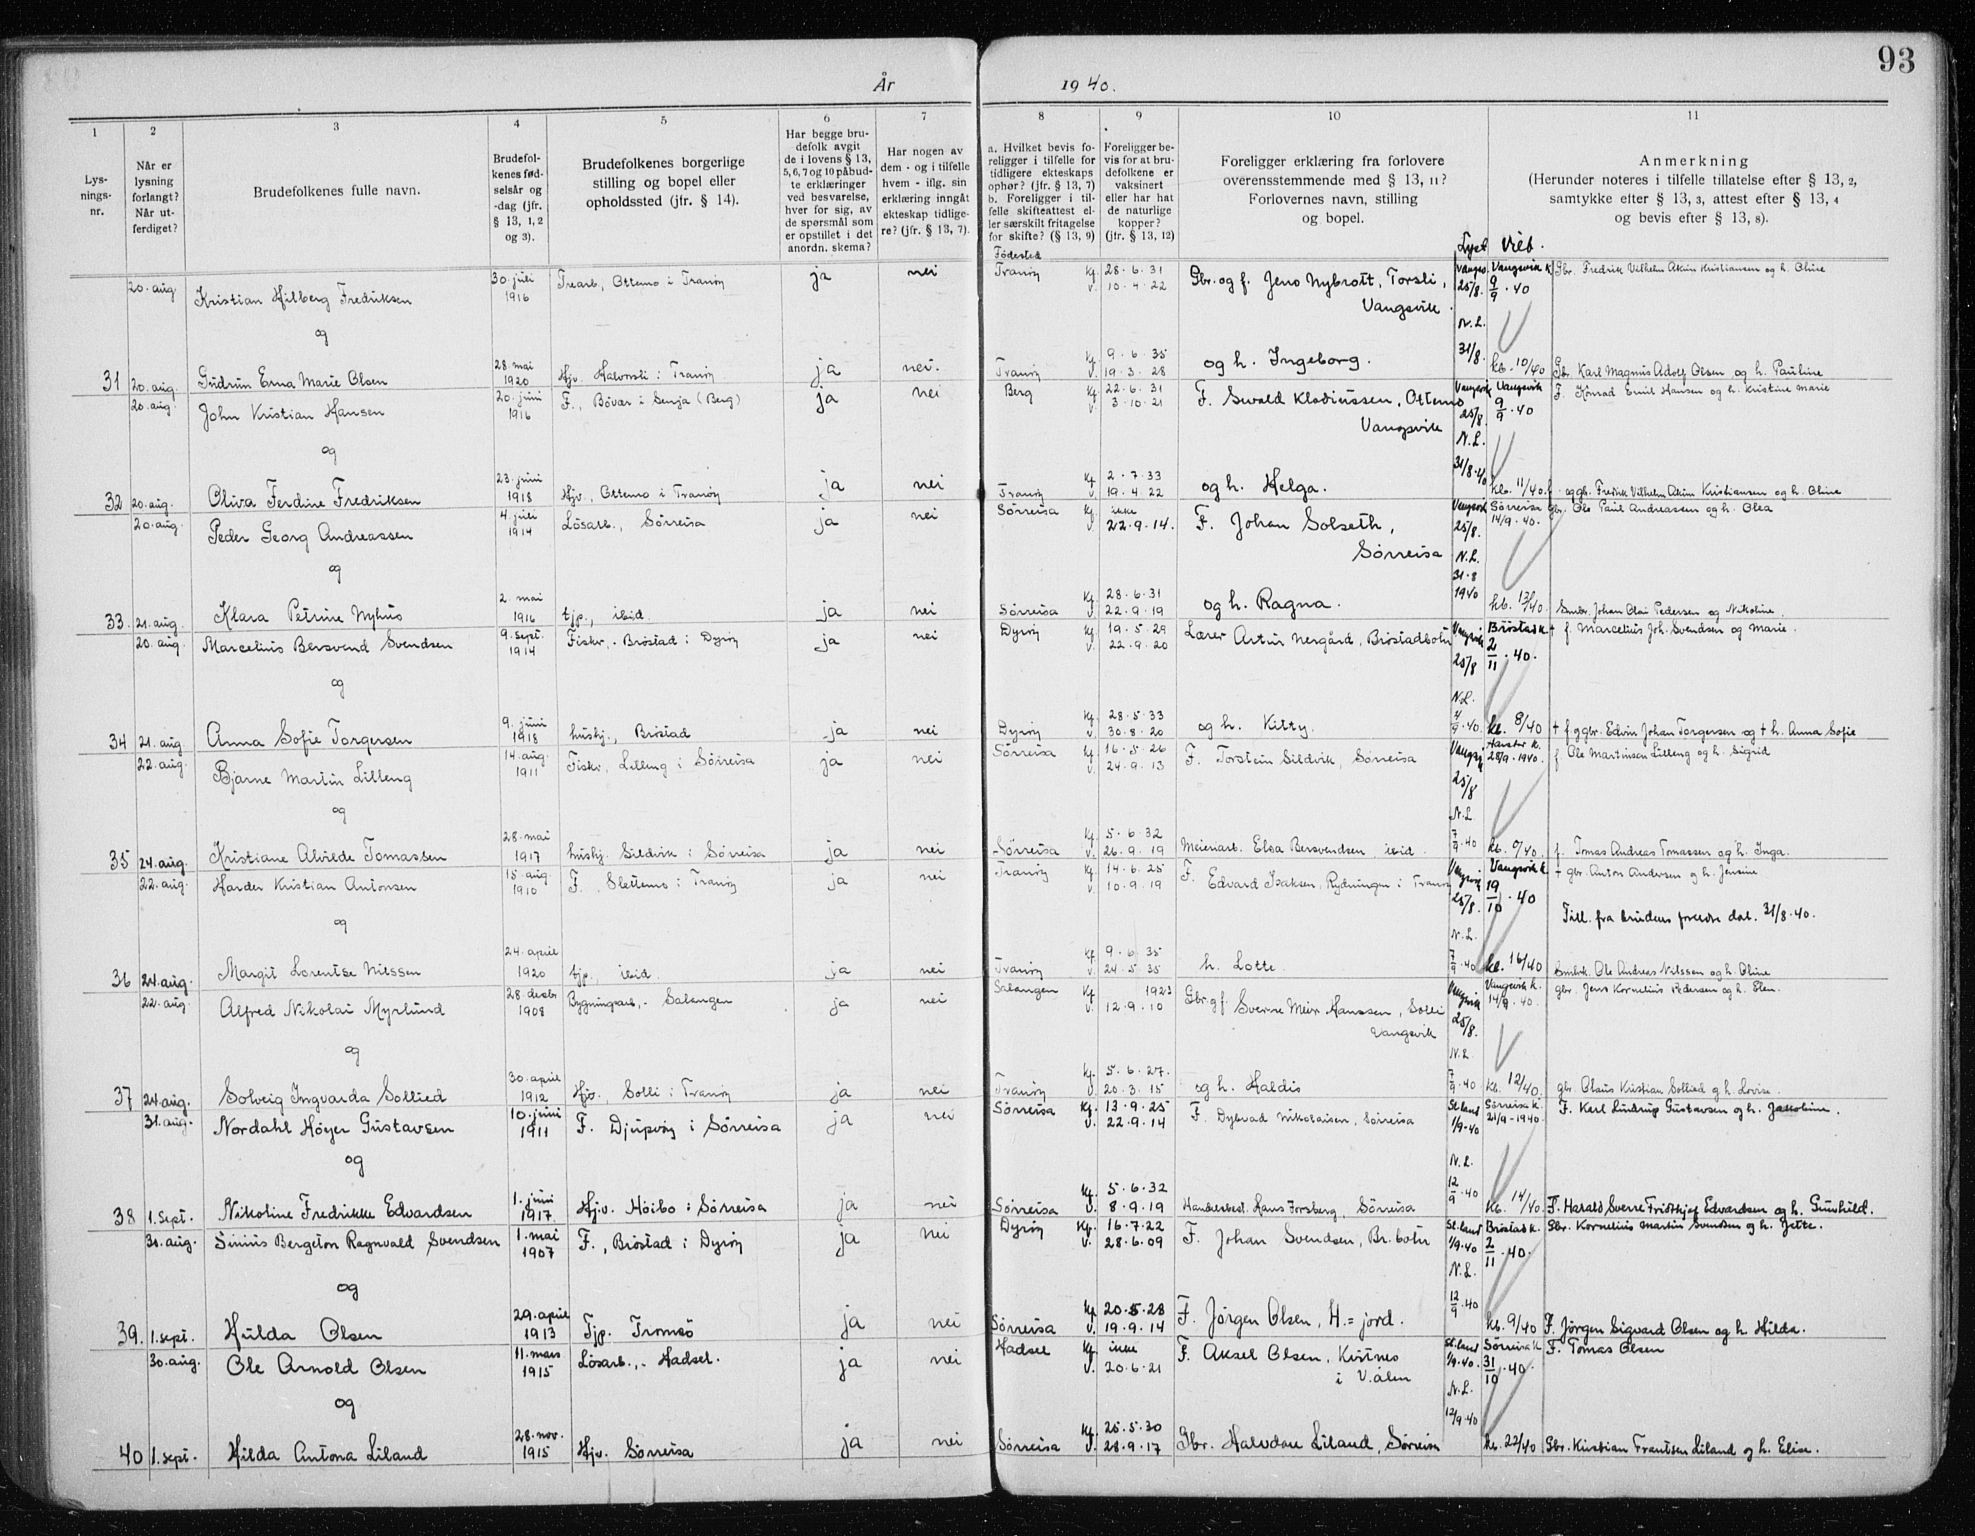 93
År 1940.
1 2 3 4 5 6 7 8 9 10 11
Lys-
nings-
nr.
Når er
lysning
forlangt?
Når ut-
ferdiget?
Brudefolkenes fulle navn.
Brudefol-
kenes fød-
selsår og
-dag (jfr.
§ 13, 1, 2
og 3).
Brudefolkenes borgerlige
stilling og bopel eller
opholdssted (jfr. § 14).
Har begge bru-
defolk avgit
de i lovens § 13,
5, 6, 7 og 10 påbud-
te erklæringer
ved besvarelse,
hver for sig, av
de spørsmål som
er opstillet i det
anordn. skema?
Har nogen av
dem - og i tilfelle
hvem - iflg. sin
erklæring inngått
ekteskap tidlige-
re? (jfr. § 13, 7).
a. Hvilket bevis fo-
religger i tilfelle for
tidligere ekteskaps
ophør? (jfr. § 13, 7)
b. Foreligger i til-
felle skifteattest el-
ler særskilt fritagelse
for skifte? (§ 13, 9)
Fødested
Foreligger be-
vis for at bru-
defolkene er
vaksinert
eller har hat
de naturlige
kopper?
(jfr. § 13, 12)
Foreligger erklæring fra forlovere
overensstemmende med § 13, 11?
Forlovernes navn, stilling
og bopel.
Anmerkning
(Herunder noteres i tilfelle tillatelse efter § 13, 2,
samtykke efter § 13, 3, attest efter § 13, 4
og bevis efter § 13, 8).
Lyst Vieb.
20. aug. Kristian Hilberg Fredriksen 30. juli 1916 Trearb., Ottemo i Tranøy ja nei Tranøy Kf. 28-6-31 V. 10-4-22 Gbr. og f. Jens Nybrott, Torsli, Vangsvik. Vangsv. 25/8. N.L. 31/8. Vangsvik k. 9/9 · 40 Gbr. Fredrik Vilhelm Akim Kristiansen og h. Oline
og
31 20. aug. Gudrun Erna Marie Olsen 28. mai 1920 Hjv. Halvorsli i Tranøy ja nei. Tranøy Kf. 9-6-35 V. 19-3-28 og h. Ingeborg. kb. 10/40 Gbr. Karl Magnus Adolf Olsen og h. Pauline
20. aug. John Kristian Hansen 20. juni 1916 F., Bövær i Senja (Berg) ja nei Berg Kf. 22-6-31 V. 3-10-21 F. Sivald Klodiussen, Ottemo Vangsvik Vangsvik 25/8. N.L. 31/8-40 Vangsvik 9/9 · 40 F. Konrad Emil Hansen og h. Kristine Marie
og
32 20. aug. Oliva Ferdine Fredriksen 23. juni 1918 Hjv., Ottemo i Tranøy ja nei Tranøy Kf. 2-7-33 V. 19-4-22 og h. Helga. kb. 11/40. f. og gbr. Fredrik Vilhelm Akim Kristiansen og h. Oline
20. aug. Peder Georg Andreassen 4. juli 1914 Lösarb., Sørreisa ja nei Sørreisa Kf. ikke V. 22-9-14. F. Johan Solseth, Sørreisa Vangsvik 25/8. N.L. 31-8 1940 Sørreisa 14/9 · 40. Gbr. Ole Paul Andreassen og h. Olea
og
33. 21. aug. Klara Petrine Nyhus 2. mai 1916 tjp., ibid. ja nei Sørreisa Kf. 28-6-31 V. 22-9-19 og h. Ragna. kb. 13/40. Småbr. Johan Olai Pedersen og Nikoline.
20. aug. Marcelius Bersvend Svendsen 9. sept. 1914 Fiskr. - Bröstad i Dyröy ja nei Dyröy Kf. 19-5-29 V. 22-9-20 Lærer Artur Nergård, Bröstadbotn Vangsvik 25/8 N.L. 4/9 · 40 Bröstad k. 2/11 · 40. + f. Marcelius Joh. Svendsen og Marie.
og
34 21. aug. Anna Sofie Torgersen 9. juni 1918 hushj., Bröstad ja nei Dyröy Kf. 28-5-33 V. 30-8-20 og h. Kitty. kb. 8/40 + f og gbr. Edvin Johan Torgersen og + h. Anna Sofie
22. aug. Bjarne Martin Lilleng 14. aug. 1911 Fiskr, Lilleng i Sørreisa ja nei Sørreisa Kf. 16-5-26 V. 24-9-13 F. Torstein Sildvik, Sørreisa Vangsvik 25/8 N.L. 7/9 · 40 Harstad k. 28/9 - 1940. f. Ole Martinsen Lilleng og h. Sigrid
og
35 24. aug. Kristiane Alvilde Tomassen 28. mai 1917 hushj. Sildvik i Sørreisa ja nei Sørreisa Kf. 5-6-32 V. 26-9-19 Meieriarb. Elsa Bersvendsen, ibid. kb. 0/40 f. Tomas Andreas Tomassen og h. Inga.
22. aug. Harder Kristian Antonsen 15. aug. 1910 F., Slettemo i Tranöy ja nei Tranöy Kf. 14-6-25 V. 10-9-19 F. Edvard Isaksen, Rydningen i Tranöy Vangsvik 25/8. N.L. 7/9 · 40 Vangsvik k. 19/10 · 40 + gbr. Anton Andersen og h. Jensine
Till. fra brudens foreldre dat. 31/8·40.
og
36 24. aug. Margit Lorentse Nilssen 24. april 1920 tjp., ibid. ja nei Tranöy Kf. 9-6-35 V. 24-5-35 h. Lotte. kb. 16/40 Småbrk. Ole Andreas Nilssen og h. Oline
22. aug. Alfred Nikolai Myrlund 28. desbr 1908 Bygningsarb., - Salangen ja nei Salangen Kf. 1923 V. 12-9-10 Gbr. g f. Sverre Meier Hanssen, Solli Vangsvik Vangsvik 25/8. N.L. 7/9 · 40 Vangsvik k. 14/9 · 40. gbr. Jens Kornelius Pedersen og h. Elen.
og
37 24. aug. Solveig Ingvarda Sollied 30. april 1912 Hjv., Solli i Tranöy ja nei Tranöy Kf. 5-6-27. V. 20-3-15 og h. Haldis kb. 12/40. gbr. Olaus Kristian Sollied og h. Lovise.
31. aug. Nordahl Höyer Gustavsen 10. juni 1911 F. Djupvöy i Sørreisa ja nei Sørreisa Kf. 13-9-25 V. 22-9-14 F. Dybvad Nikolaisen, Sørreisa St.land 1/9-40 N.L. 12/9 · 40 Sørreisa k. 21/9 - 1940. F. Karl Lindrup Gustavsen og h. Jakobine.
og
38 1. Sept. Nikoline Fredrikke Edvardsen 1. juni 1917 Hjv. Höibo i Sørreisa ja nei Sørreisa Kf. 5-6-32 V. 8-9-19 Handelsbest. Hans Forsberg, Sørreisa kb. 14/40. F. Harald Sverre Fridthjof Edvardsen og h. Gunhild.
30. aug. Sinius Bergeton Ragnvald Svendsen 1. mai 1907 F., Bröstad i Dyröy ja nei Dyröy Kf. 16-7-22 V. 28-6-09 F. Johan Svendsen, Br.botn St.land 1/9-40 N.L. 12/9 · 40 Bröstad k. 2/11 · 40. Gbr. Kornelius Martin Svendsen og h. Jette.
og
39. 1. sept. Hulda Olsen 29. april 1913 Tjp. Tromsö ja nei Sørreisa Kf. 20-5-28 V. 19-9-14 F. Jörgen Olsen, H.=jord. kb. 9/40 F. Jörgen Sigvard Olsen og h. Hilda.
30. aug. Ole Arnold Olsen 11. mars 1915 Lösarb., - Hadsel. ja nei Hadsel Kf. ikke V. 20-6-21 F. Aksel Olsen, Kistnes i V.ålen St.land 1/9-40. N.L. 12/9-40 Sørreisa k. 31/10 · 40. F. Tomas Olsen
og
40 1. sept. Hilda Antona Liland 28. nov. 1915 Hjv. Sørreisa ja nei Sørreisa Kf. 25-5-30 V. 28-9-17 Gbr. Halvdan Liland, Sørreisa kb. 22/40 Gbr. Kristian Frantsen Liland og h. Elise.